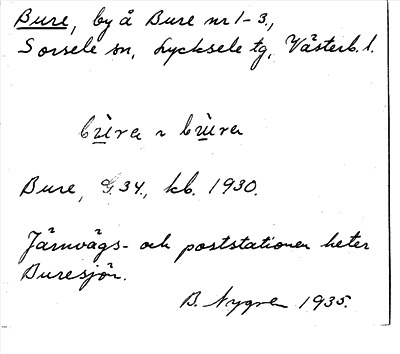 Bure, by å Bure nr 1-3,
Sorsele sn, Lycksele tg, Västerb. l.
bùra ~ bùra
Bure, G. 34, kb. 1930.
Järnvägs- och poststationen heter
Buresjön.
B. Nygren 1935.